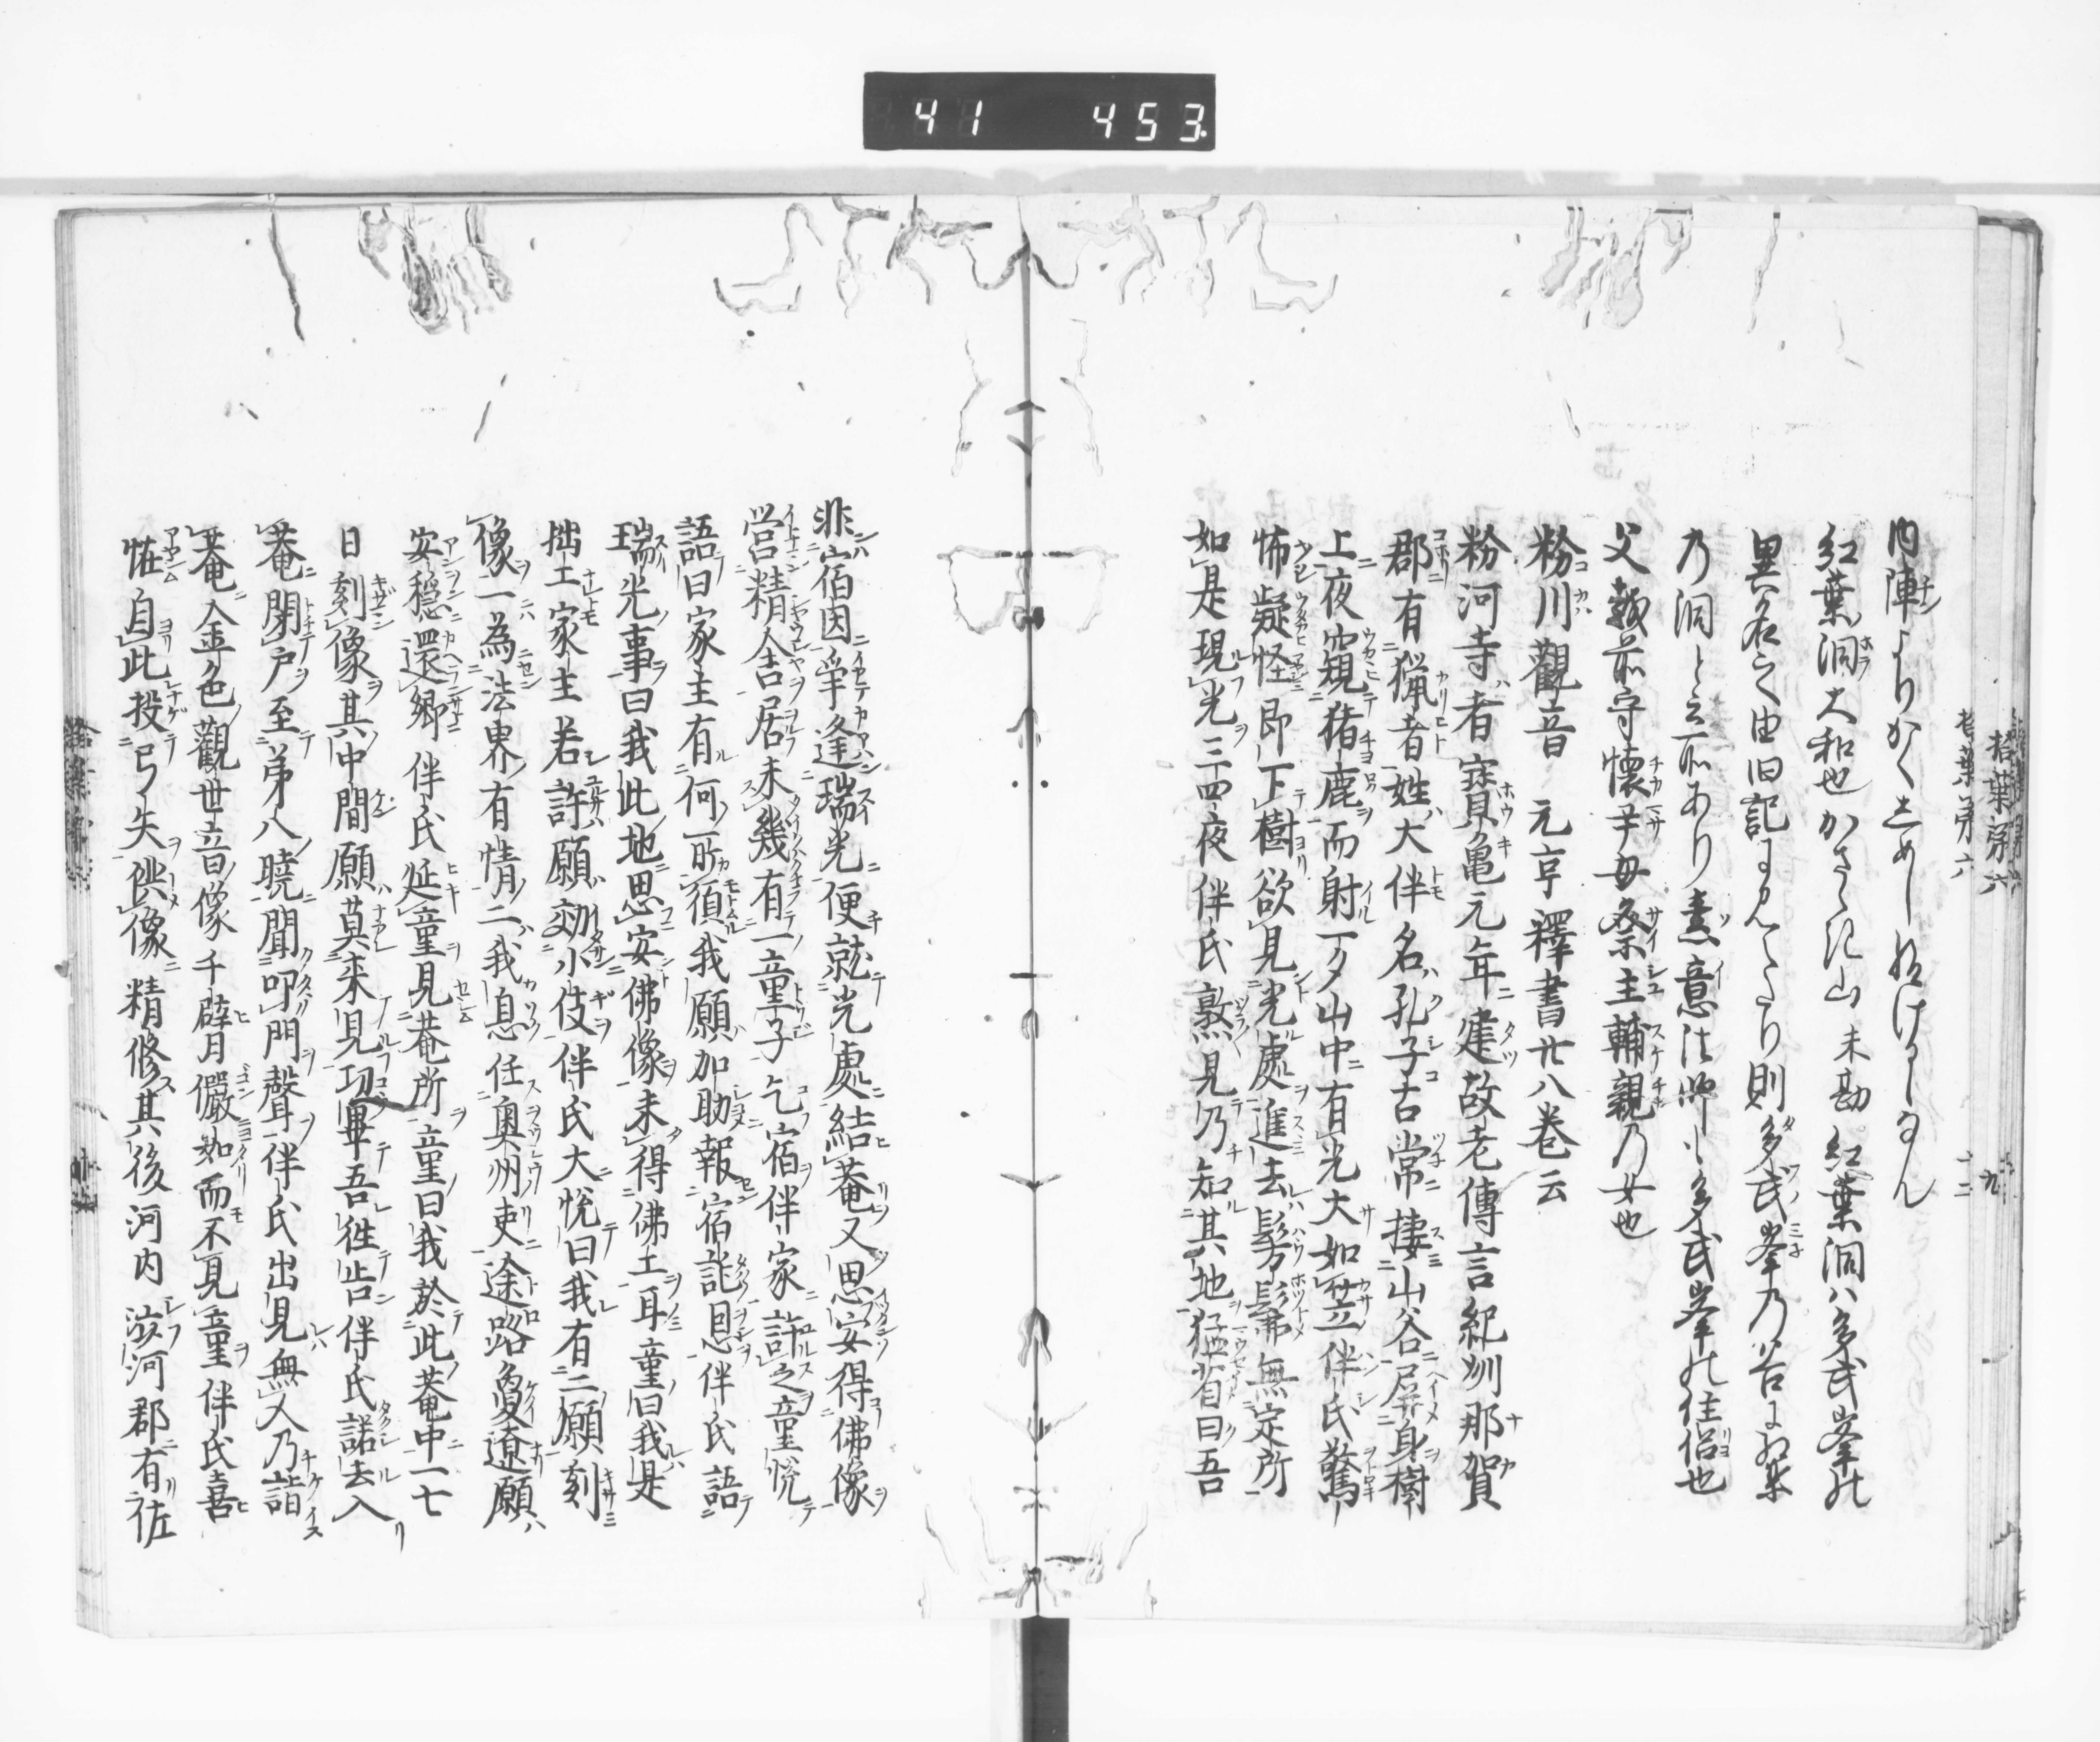 41 453.
拾葉第六
内陣よりかくしめし給けるなん
紅葉洞大和也かさゝ記山未勘紅葉洞ハ多武峯の
異名之由旧記に見えたり則多武峯乃谷に紅葉
乃洞と云所あり素意法師ハ多武峯の住侶也
父越前守懐 母祭主輔親乃女也
粉川觀音 元亨釋書廿八巻云
粉河寺者寳亀元年建故老傳言紀州那賀
郡有猟者姓大伴名孔子古常捿山谷屏身樹
上夜窺猪鹿而射一夕山中有光大如笠伴氏驚
怖疑怪即下樹欲見光處進去髣髴無定所
如是現光三四夜伴氏熟見乃知其地猛省曰吾
非宿因爭逢瑞光便就光處結菴又思安得佛像
営精舎居未幾有一童子乞宿伴家許之童悦
語曰家主有何所須我願加助報宿詫恩伴氏語
瑞光事曰我此地思安佛像未得佛工耳童曰我是
拙工家主若許願効小伎伴氏大悦曰我有二願刻
像一為法界有情二我息任奥州吏途路敻遼願
安穏還郷伴氏延童見菴所童曰我於此菴中一七
日刻像其中間願莫来見功畢吾徃告伴氏諾去入
菴閇戸至弟八曉聞叩門聲伴氏出見無人乃詣
菴金色觀世音像千臂月儼如而不見童伴氏喜
恠自此投弓矢供像精修其後河内渋河郡有佐